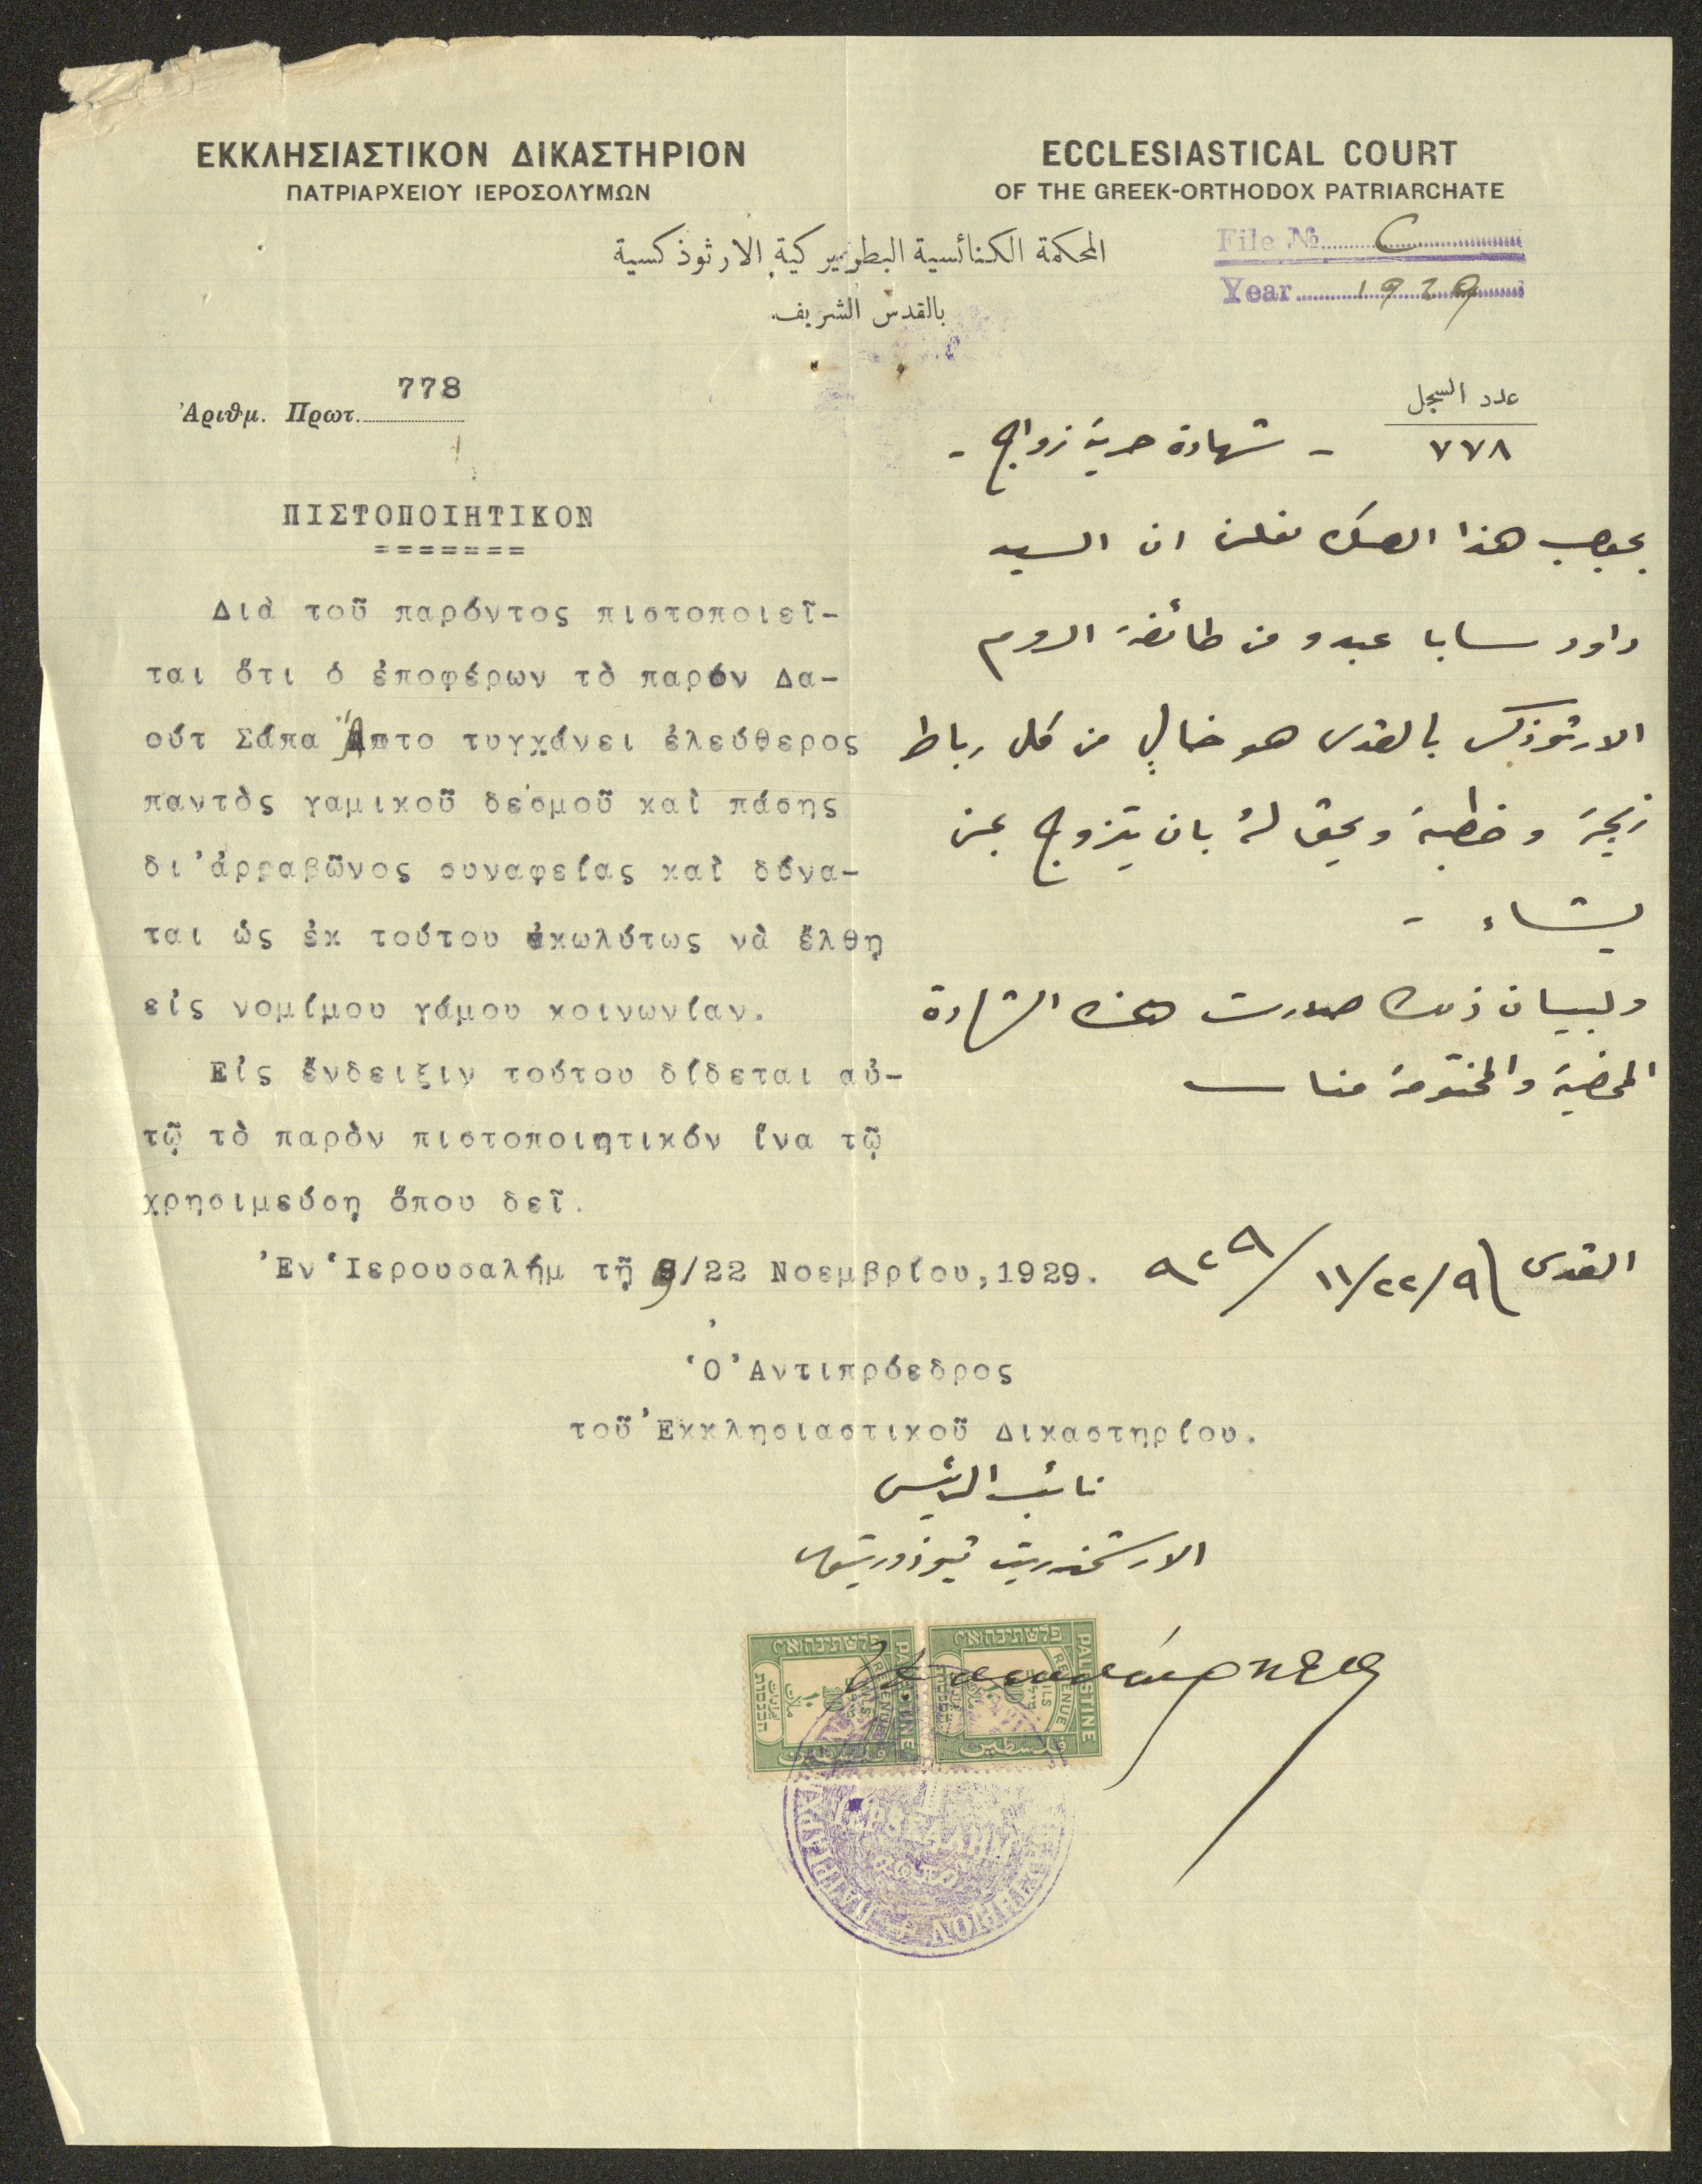 ΕΚΚΛΗΣΙΑΣΤΙΚΟΝ ΔΙΚΑΣΤΗΡΙΟΝ
ΠΑΤΡΙΑΡΧΕΙΟΥ ΙΕΡΟΣΟΛΥΜΩΝ
ECCLESIASTICAL COURT
OF THE GREEK-ORTHODOX PATRIARCHATE
المحكمة الكنائسية البطريركية الارثوذكسية
بالقدس الشريف
File № C
Year 1929
Ἀριθμ. Πρωτ. 778
ΠΙΣΤΟΠΟΙΗΤΙΚΟΝ
=======
Διὰ τοῦ παρόντος πιστοποιεῖ-
ται ὅτι ὁ ἐποφέρων τὸ παρόν Δα-
ούτ Σάπα Ἄπτο τυγχάνει ἐλεύθερος
παντὸς γαμικοῦ δεσμοῦ καὶ πάσης
δι'ἀρραβῶνος συναφείας καὶ δύνα-
ται ὡς ἐκ τούτου ἀκωλύτως νὰ ἔλθῃ
εἰς νομίμου γάμου κοινωνίαν.
Εἰς ἔνδειξιν τούτου δίδεται αὐ-
τῷ τὸ παρὸν πιστοποιητικόν ἵνα τῷ
χρησιμεύσῃ ὅπου δεῖ.
Ἐν Ἱερουσαλήμ τῇ 9/22 Νοεμβρίου,1929.
عدد السجل
٧٧٨
- شهادة حرية زواج -
بموجب هذا الصك نعلن ان السيد
داود سابا عبدو من طائفة الروم
الارثوذكس بالقدس هو خالٍ من كل رباط
زيجة وخطبة ويحق لهُ بان يتزوج بمن
يشاء -
ولبيان ذلك صدرت هذه الشهادة
الممضية والمختومة منا
القدس ٩/٢٢/١١/٩٢٩
Ὁ Ἀντιπρόεδρος
τοῦ Ἐκκλησιαστικοῦ Δικαστηρίου.
نائب الرئيس
الارشمندريت تيوذوريتوس
PALESTINE
REVENUE
10
MILS
فلسطين
PALESTINE
REVENUE
MILS
فلسطين